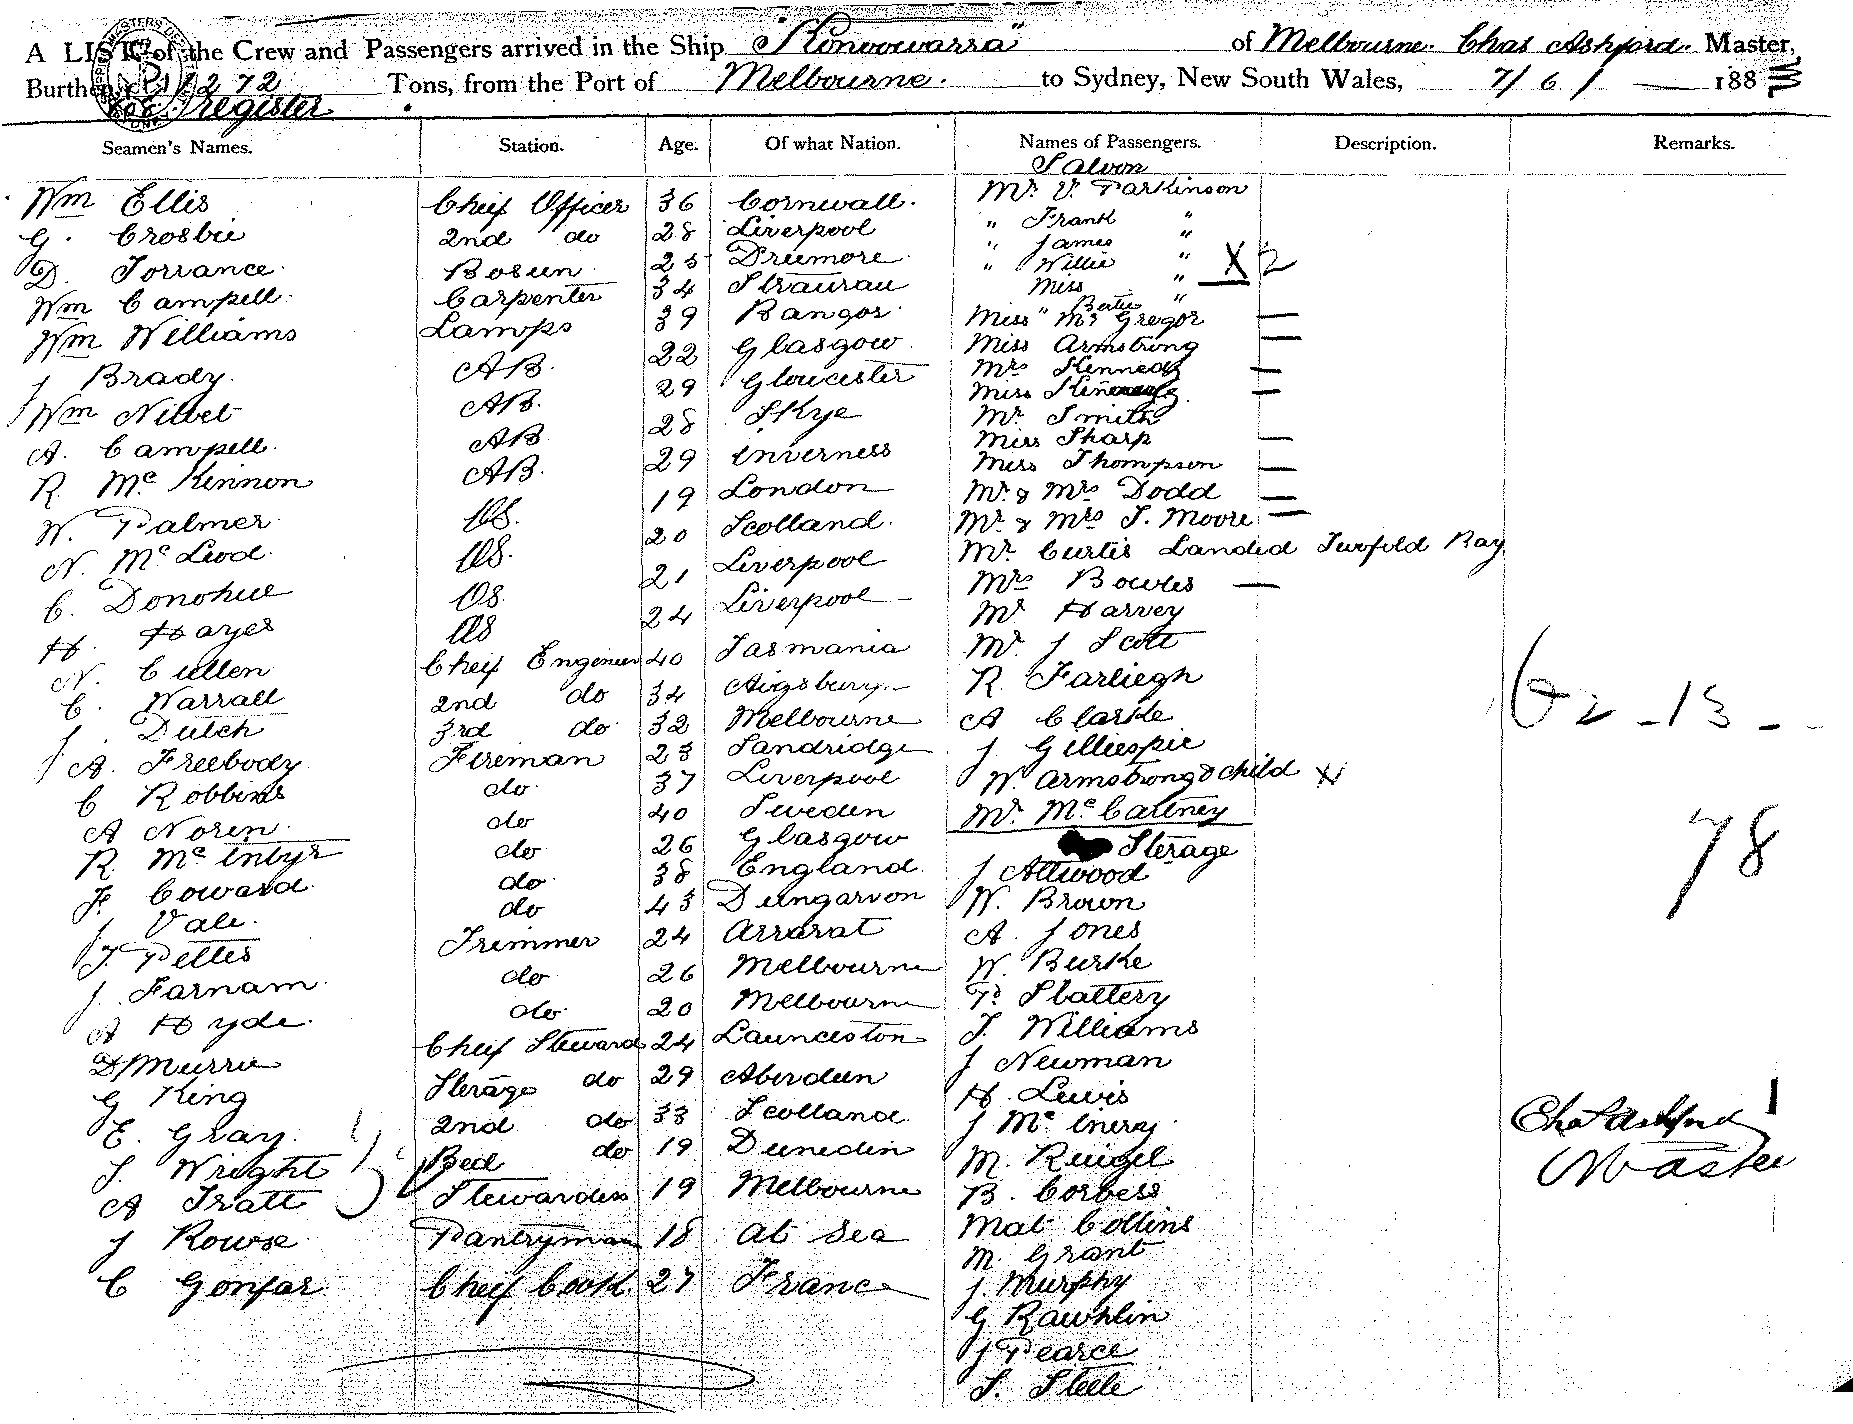 A LIST of the Crew and Passengers arrived in the Ship "Konoowarra" of Melbourne. Chas Ashford. Master,
Burthen 1272 Tons, from the Port of Melbourne. to Sydney, New South Wales, 7/6/ 188
register
Seamen's Names. Station. Age. Of what Nation. Names of Passengers. Description. Remarks.
Saloon
Wm Ellis Cheif Officer 36 Cornwall. Mr. V. Parkinson
G. Crosbie 2nd do 28 Liverpool " Frank "
D. Torrance. Bosun. 25 Dreemore. " James "
Wm Campell. Carpenter 34 Straurau " Willie " X 2
Wm Williams Lamps 39 Bangor. Miss "
J Brady. AB. 22 Glasgow. " Bertie "
Wm Nibet AB. 29 Gloucester Miss Mc Gregor —
A. Campell. AB 28 Skye Miss Armstrong —
R. Mc Kinnon AB. 29 Inverness Mrs Kennedy —
W. Palmer. OS. 19 London Miss Kennedy —
N. Mc Leod. OS. 20 Scotland. Mr. Smith
C. Donohue OS. 21 Liverpool Miss Sharp —
H. Hayes OS 24 Liverpool — Miss Thompson —
N. Cullen Cheif Engineer 40 Tasmania Mr. & Mrs Dodd —
C. Warrall 2nd do 34 Aigsbury. Mr. & Mrs S. Moore —
J. Dutch 3rd do 32 Melbourne Mr. Curtis Landed Twofold Bay
A. Freebody. Fireman 23 Sandridge Mrs Bowles —
C Robbins do 37 Liverpool Mr. Harvey
A Noren. do 40 Sweden Mr. J Scott
R. Mc Intyr do 26 Glasgow R. Farliegh
F. Coward. do 38 England. A Clarke
J. Vale. do 43 Dungarvon J Gilliespie
T. Pettes Trimmer 24 Ararat W. Armstrong & child X
J. Farnam. do 26 Melbourne Mr. Mc Cartney
A Hyde. do 20 Melbourne Sterage
D Murrie Cheif Steward 24 Launceston J Attwood
G King Sterage do 29 Aberdeen W. Brown
E. Gray. 2nd do 33 Scotland A. Jones
S. Wright Bed do 19 Dunedin W. Burke
A Tratt Stewardess 19 Melbourne P. Slattery
J Rowse Pantryman 18 at Sea T. Williams
C Gonfar. Cheif Cook. 27 France J Newman
H. Lewis
J Mc Inery.
M. Reigel
B. Corbess
Mat Collins
M. Grant
J. Murphy
G Rawhlin
J Pearce
S. Steele
62 - 13 -
78
Chas Ashford
Master